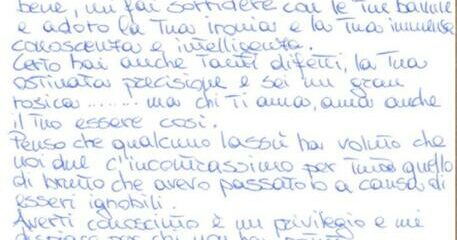 bene, mi fai sorridere con le tue battute
e adoro la Tua ironia e la Tua immensa
conoscenza e intelligenza.
Certo hai anche Tanti difetti, la Tua
ostinata precisione e sei un gran
rosica ........ ma chi Ti ama, ama anche
il Tuo essere così.
Penso che qualcuno lassù ha voluto che
noi due c'incontrassimo per tutto quello
di brutto che avevo passato a causa di
esseri ignobili.
Averti conosciuto è un privilegio e mi
dispiace per chi non ha